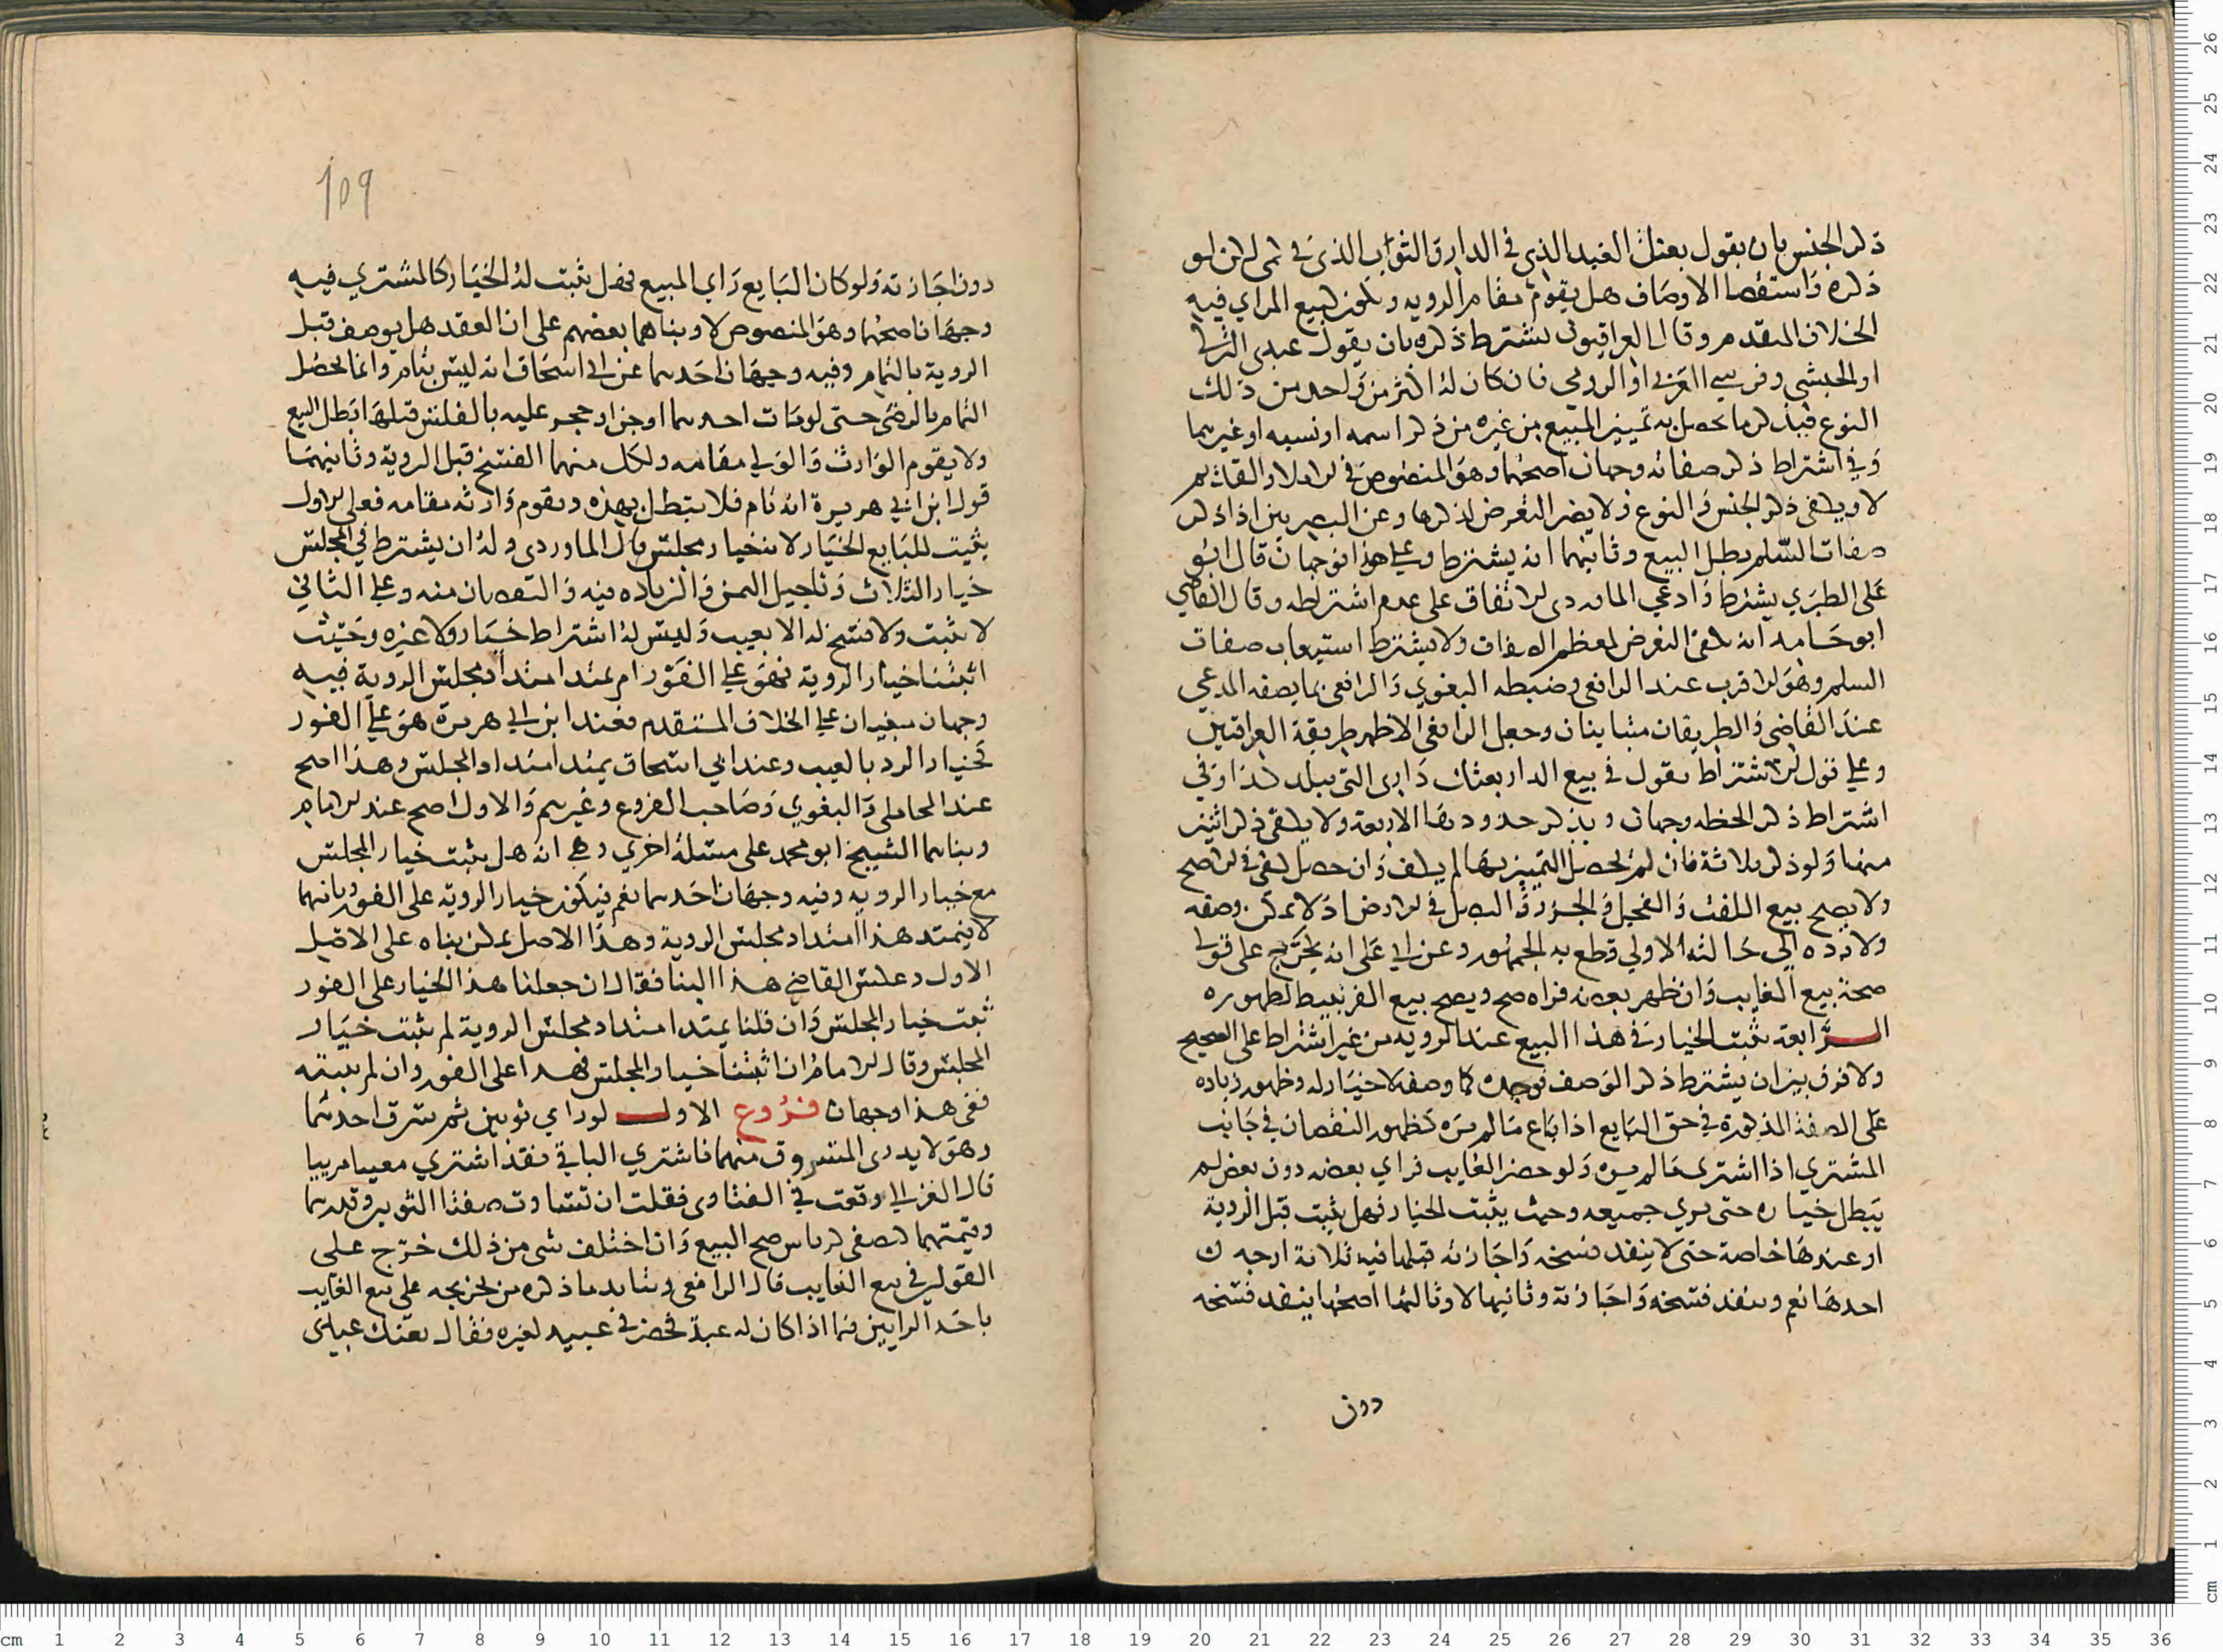 ذكر الجنس بان يقول بعتك العبد الذي في الدار والثوب الذي في كمي لكن لو
ذكره واستقصا الاوصاف هل يقوم مقام الرويه ويكون كبيع المراي فيه
الخلاف المتقدم وقال العراقيون يشترط ذكره بان يقول عبدي التركي
او الحبشي وفرسي العربي او الرومي فان كان له اكثر من واحد من ذلك
النوع فيذكر ما يحصل به تمييز المبيع من غيره من ذكر اسمه او نسبه او غيرهما
وفي اشتراط ذكر صفاته وجهان اصحهما وهو المنصوص في الاملا والقديم
لا ويكفي ذكر الجنس والنوع ولا يضر التعرض لذكرها وعن البصريين اذا ذكر
صفات السلم بطل البيع وثانيهما انه يشترط وعلى هذا فوجهان قال ابو
علي الطبري يشترط وادعي الماوردي الاتفاق على عدم اشتراطه وقال القاضي
ابو حامد انه يكفي التعرض لمعظم الصفات ولا يشترط استيعاب صفات
السلم وهو الاقرب عند الرافعي وضبطه البغوي والرافعي بما يصفه المدعي
عند القاضي والطريقان متباينان وجعل الرافعي الاظهر طريقة العراقيين
وعلى قول الاشتراط يقول في بيع الدار بعتك داري التي ببلد كذا وفي
اشتراط ذكر الخطه وجهان ويذكر حدودها الاربعة ولا يكفي ذكر اثنين
منها ولو ذكر ثلاثة فان لم يحصل التمييز بها لم يكف وان حصل كفى في الاصح
ولا يصح بيع اللفت والفجل والجزر والبصل في الارض اذ لا يمكن وصفه
ولا رده الي حالته الاولي قطع به الجمهور وعن ابي علي انه يخرج على قولي
صحة بيع الغايب وان ظهر بعضه فراه صح ويصح بيع القرنبيط لظهوره
الرابعة يثبت الخيار في هذا البيع عند الرويه من غير اشتراط على الصحيح
ولا فرق بين ان يشترط ذكر الوصف فوجده كما وصف لا خيار له وظهور زياده
على الصفة المذكورة في حق البايع اذا باع ما لم يره كظهور النقصان في جانب
المشتري اذا اشترى ما لم يره ولو حضر الغايب فراي بعضه دون بعض لم
يبطل خياره حتى يري جميعه وحيث يثبت الخيار فهل يثبت قبل الروية
او عندها خاصة حتى لا ينفذ فسخه واجازته قبلها فيه ثلاثة اوجه
احدها نعم وينفذ فسخه واجازته وثانيها لا وثالثها اصحها ينفذ فسخه
دون
109
دون اجازته ولو كان البايع راي المبيع فهل يثبت له الخيار كالمشتري فيه
وجهان اصحهما وهو المنصوص لا وبناهما بعضهم على ان العقد هل يوصف قبل
الروية بالتمام وفيه وجهان احدهما عن ابي اسحاق انه ليس بتام وانما يحصل
التمام بالرضى حتى لو مات احدهما او جن او حجر عليه بالفلس قبلها بطل البيع
ولا يقوم الوارث والولي مقامه ولكل منهما الفسخ قبل الروية وثانيهما
قول ابن ابي هريرة انه تام فلا يبطل بهذه ويقوم وارثه مقامه فعلى الاول
يثبت للبايع الخيار لانه خيار مجلس قال الماوردي وله ان يشترط في المجلس
خيار الثلاث وتاجيل الثمن والزياده فيه والنقصان منه وعلى الثاني
لا يثبت ولا فسخ له الا بعيب وليس له اشتراط خيار ولا غيره وحيث
اثبتنا خيار الروية فهو على الفور ام يمتد امتداد مجلس الروية فيه
وجهان مبنيان على الخلاف المتقدم فعند ابن ابي هريرة هو على الفور
كخيار الرد بالعيب وعند ابي اسحاق يمتد امتداد المجلس وهذا اصح
عند المحاملي والبغوي وصاحب الفروع وغيرهم والاول اصح عند الامام
وبناهما الشيخ ابو محمد على مسئلة اخري وهي انه هل يثبت خيار المجلس
مع خيار الرويه وفيه وجهان احدهما نعم فيكون خيار الروية على الفور وثانيهما
لا يمتد هذا امتداد مجلس الروية وهذا الاصل يمكن بناه على الاصل
الاول وعكس القاضي هذا البنا فقال ان جعلنا هذا الخيار على الفور
ثبت خيار المجلس وان قلنا يمتد امتداد مجلس الروية لم يثبت خيار
المجلس وقال الامام ان اثبتنا خيار المجلس فهذا على الفور وان لم نثبته
ففي هذا وجهان فروع الاول لو راي ثوبين ثم سرق احدهما
وهو لا يدري المسروق منهما فاشتري الباقي فقد اشتري معينا مرييا
قال الغزالي وقعت في الفتاوى فقلت ان تساوت صفتا الثوبين وقدرهما
وقيمتهما كنصفي كرباس صح البيع وان اختلف شي من ذلك خرج على
القولين في بيع الغايب قال الرافعي ويتايد ما ذكره من تخريجه على بيع الغايب
باحد الرايين فيما اذا كان له عبد فحضر في عبيد لغيره فقال بعتك عبدي